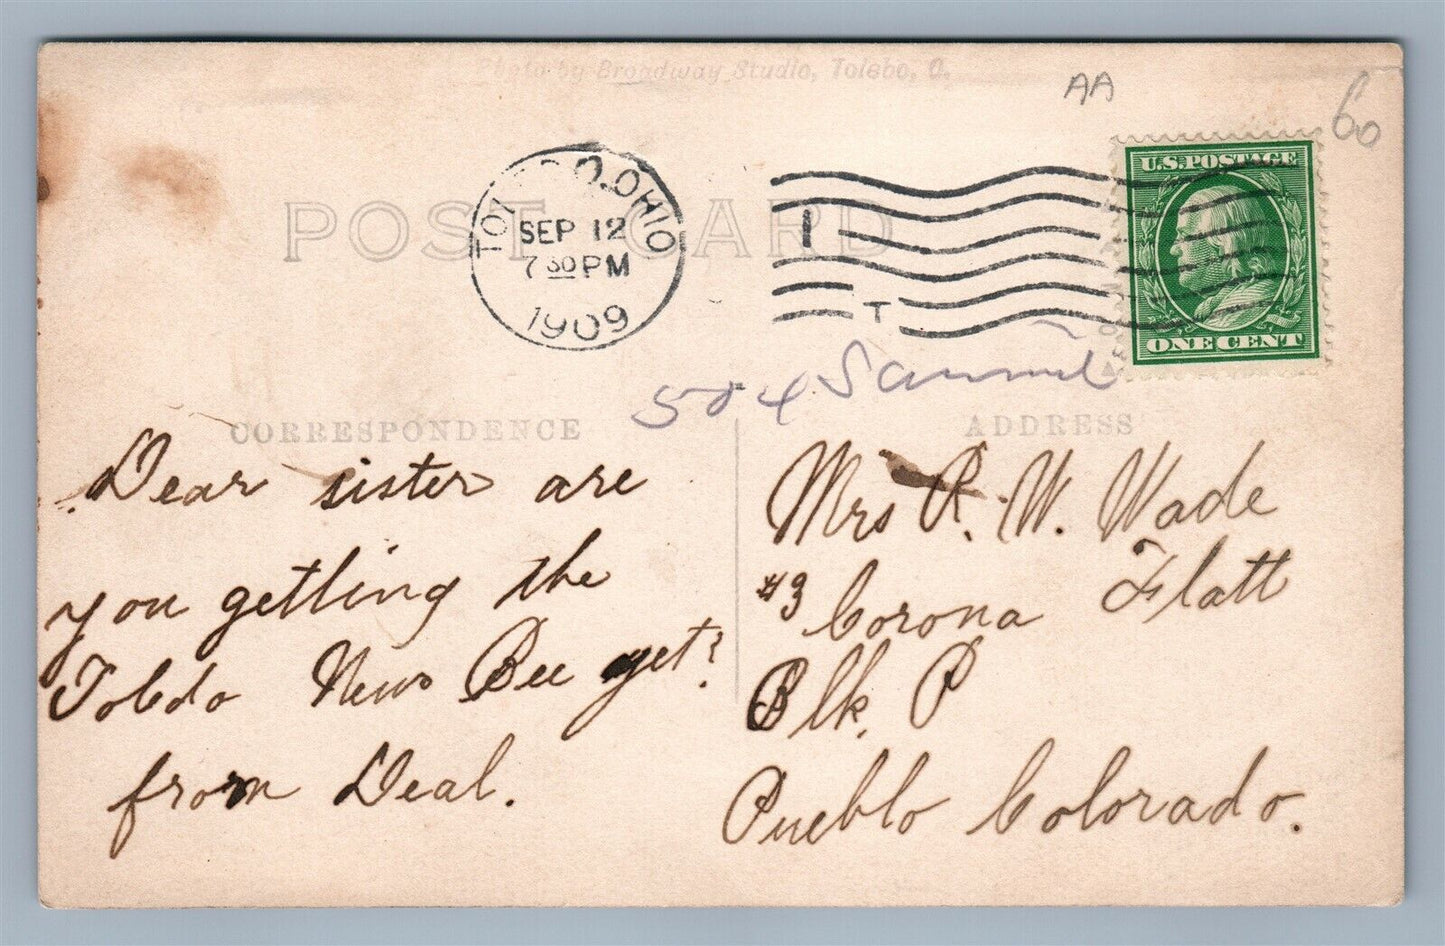 Photo by Broadway Studio, Toledo, O.
AA
60
POST CARD
O.OHIO
SEP 12
7 30 PM
1909
I
T
U.S.POSTAGE
ONE CENT
504 Summit
CORRESPONDENCE
ADDRESS
Dear sister are
you getting the
Toledo News Bee yet?
from Deal.
Mrs R. W. Wade
#3 Corona Flatt
Blk. P
Pueblo Colorado.